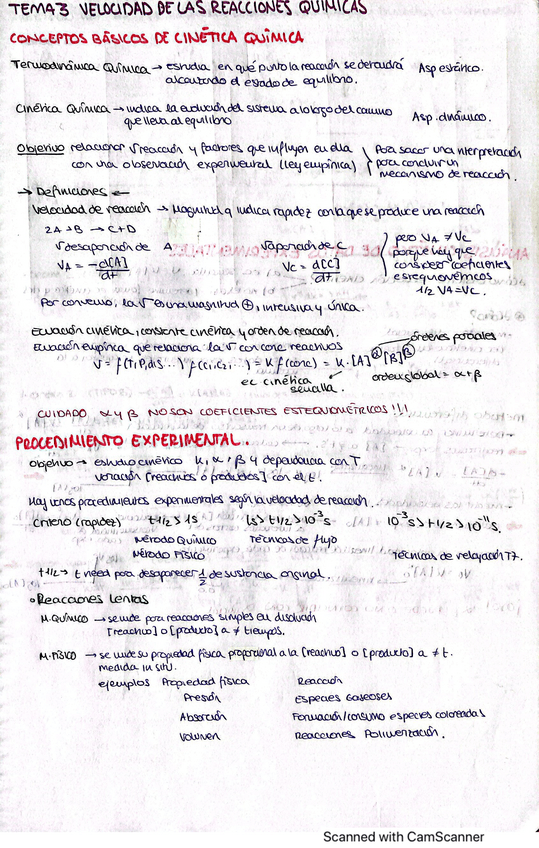 TEMA 3 VELOCIDAD DE LAS REACCIONES QUÍMICAS
CONCEPTOS BÁSICOS DE CINÉTICA QUÍMICA
Termodinámica Química → estudia en qué punto la reacción se detendrá Asp estático.
alcanzando el estado de equilibrio.
Cinética Química → indica la evolución del sistema a lo largo del camino Asp. dinámico.
que lleva al equilibrio
Objetivo relacionar v reacción y factores que influyen en ella
con una observación experimental (ley empírica)
Para sacar una interpretación
para concluir un
mecanismo de reacción.
→ Definiciones ←
Velocidad de reacción → Magnitud q indica rapidez con la que se produce una reacción
2A + B → C + D
v desaparición de A v aparición de C
VA = -d[A]/dt Vc = d[C]/dt
pero VA ≠ Vc
porque hay que
considerar coeficientes
estequiométricos
1/2 VA = Vc.
Por convenio, la v es una magnitud ⊕, intensiva y única.
Ecuación cinética, constante cinética y orden de reacción.
Ecuación empírica que relaciona la v con conc reactivos órdenes parciales
V = f(T, P, dis...) f(c1, c2, ...) = K f(conc) = K · [A]^α [B]^β
ec cinética sencilla. orden global = α + β
* CUIDADO α y β NO SON COEFICIENTES ESTEQUIOMÉTRICOS!!!
PROCEDIMIENTO EXPERIMENTAL.
Objetivo → estudio cinético K, α, β y dependencia con T
variación [reactivos o productos] con el t.
Hay varios procedimientos experimentales según la velocidad de reacción.
Criterio (rapidez) t1/2 > 1s 1s > t1/2 > 10⁻³ s 10⁻³ s > t1/2 > 10⁻¹¹ s.
Método Químico Técnicas de flujo
Método Físico Técnicas de relajación
t1/2 → t need para desaparecer 1/2 de sustancia original.
° Reacciones Lentas
M. Químico → se mide para reacciones simples en disolución
[reactivo] o [producto] a ≠ tiempos.
M. Físico → se mide su propiedad física proporcional a la [reactivo] o [producto] a ≠ t.
medida in situ.
ejemplos Propiedad física Reacción
Presión Especies Gaseosas
Absorción Formación/consumo especies coloreadas
Volumen Reacciones Polimerización.
Scanned with CamScanner